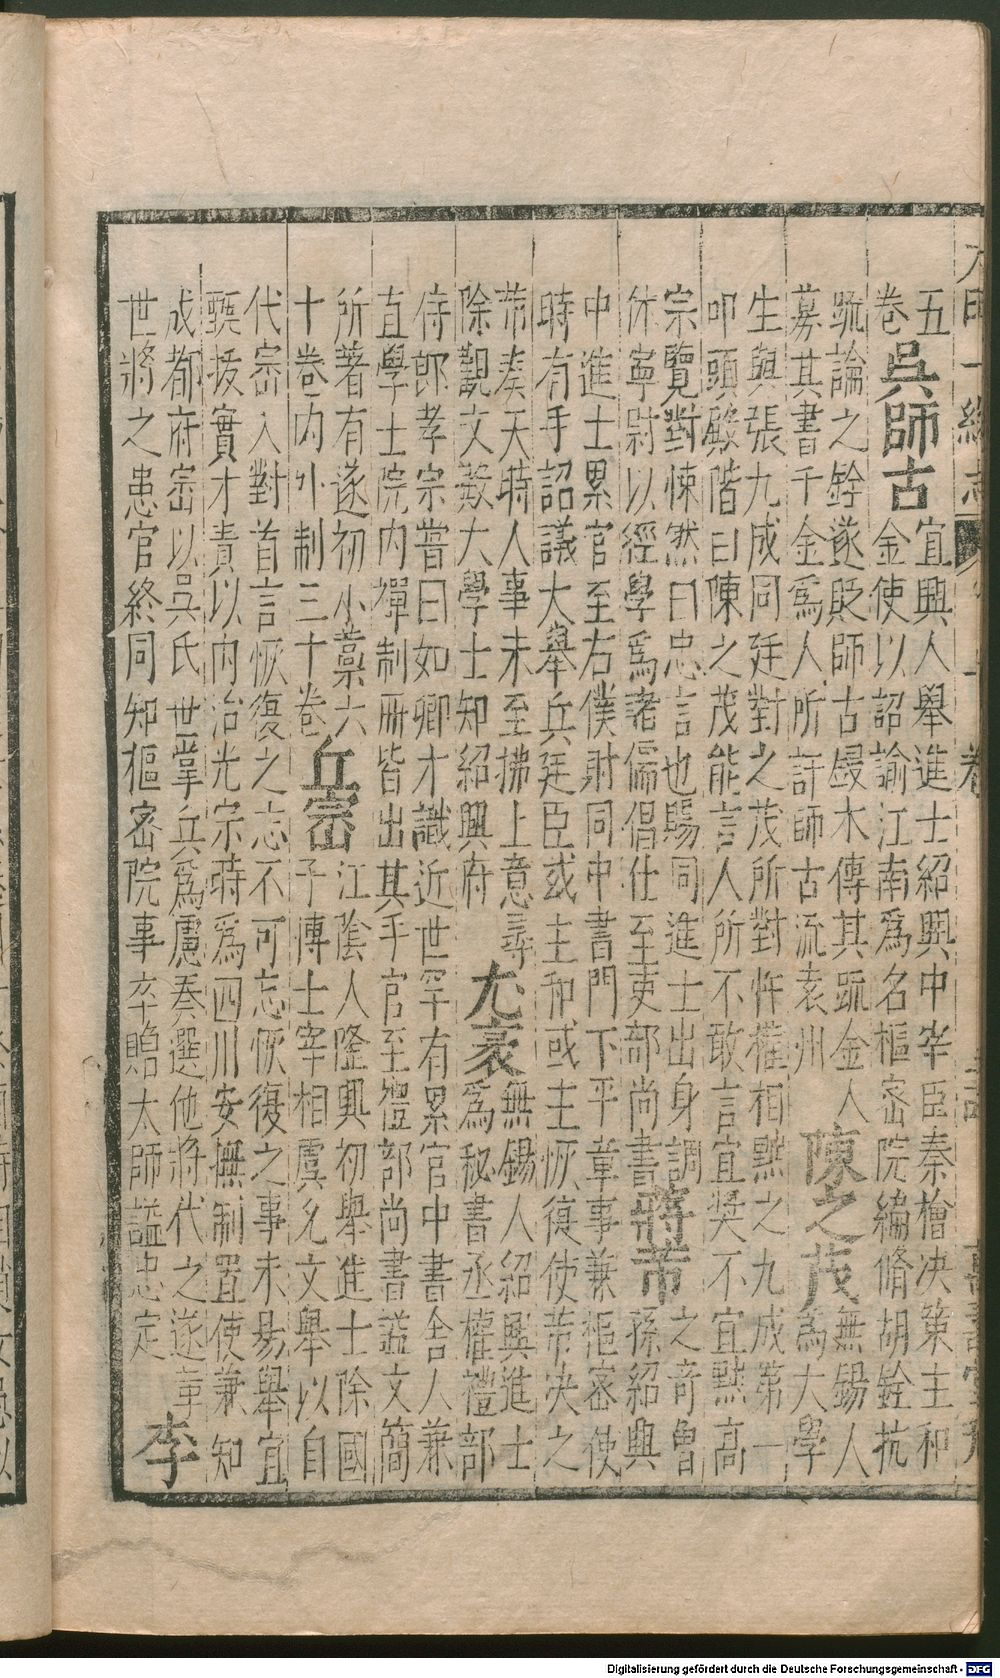 大明一統志 卷
五
卷
吳師古
宜興人舉進士紹興中宰臣秦檜决策主和
金使以詔諭江南爲名樞密院編脩胡銓抗
䟽論之銓遂貶師古鋟木傳其䟽金人
募其書千金爲人所訐師古流袁州
陳之茂
無錫人
爲大學
生與張九成同廷對之茂所對忤權相黜之九成第一
叩頭殿階曰陳之茂能言人所不敢言宜奬不宜黜高
宗覽對悚然曰忠言也賜同進士出身調
休寧尉以經學爲諸儒倡仕至吏部尚書
蔣芾
之奇曾
孫紹興
中進士累官至右僕射同中書門下平章事兼樞密使
時有手詔議大舉兵廷臣或主和或主恢復使芾决之
芾奏天時人事未至拂上意尋
除觀文殿大學士知紹興府
尤袤
無錫人紹興進士
爲秘書丞權禮部
侍郎孝宗嘗曰如卿才識近世罕有累官中書舍人兼
直學士院内禪制冊皆出其手官至禮部尚書謚文簡
所著有遂初小藁六
十卷内外制三十卷
丘崈
江陰人隆興初舉進士除國
子博士宰相虞允文舉以自
代崈入對首言恢復之志不可忘恢復之事未易舉宜
甄拔實才責以内治光宗時爲四川安撫制置使兼知
成都府崈以吳氏世掌兵爲慮奏選他將代之遂革
世將之患官終同知樞密院事卒贈太師謚忠定
李
Digitalisierung gefördert durch die Deutsche Forschungsgemeinschaft - DFG